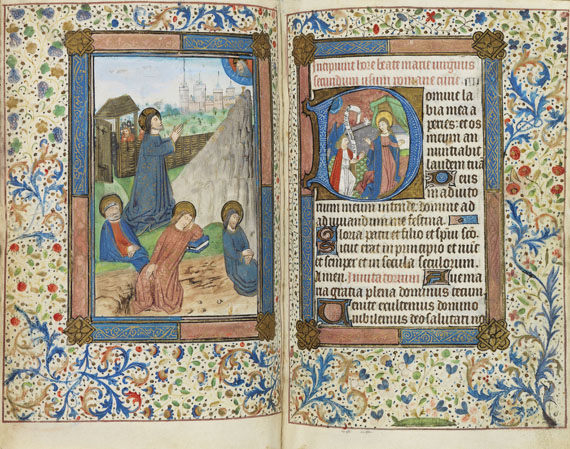 Incipiunt hore beate marie virginis
secundum usum romane curie
Domine la
bia mea a
peries : et os
meum an
nuntiabit
laudem tuā
Deus
in adiuto
rium meum intende. domine ad
adiuuandum me festina.
Gloria patri et filio et spiritui sco
Sicut erat in principio et nūc
et semper et in secula seculorum.
Amen. Inuitatorium Aue ma
ria gratia plena dominus tecum
Uenite exultemus domino
iubilemus deo salutari no